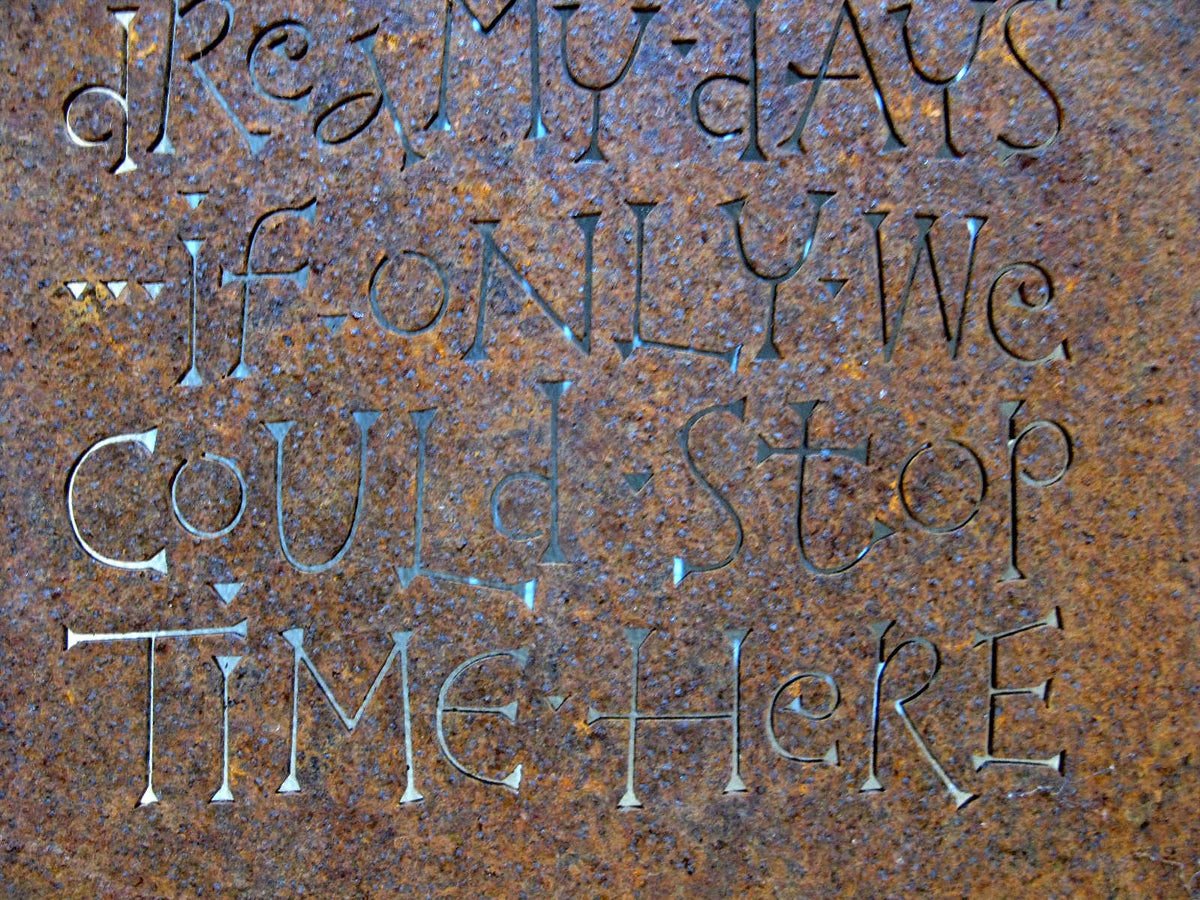 dReaMY·dAYS
...if·oNLY·We
CoULd·StoP
TiME·HeRE